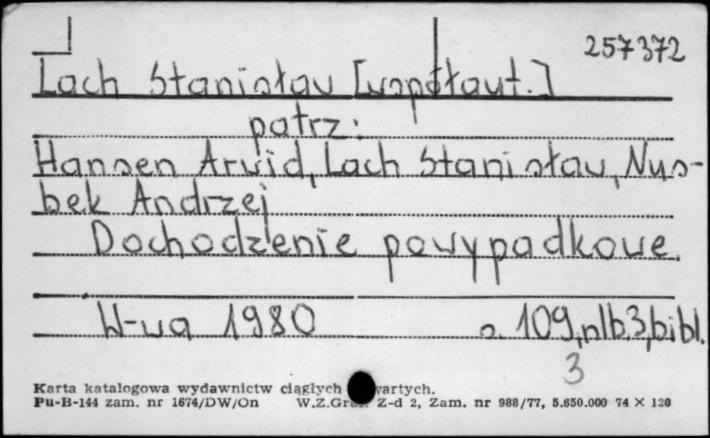 257372
Lach Stanisław [współaut.]
patrz:
Hansen Arwid, Lach Stanisław, Nus-
bek Andrzej
Dochodzenie powypadkowe.
W-wa 1980 s. 109, nlb.3, bibl.
3
Karta katalogowa wydawnictw ciągłych
Pu-B-144 zam. nr 1674/DW/On W.Z.Graf. Z-d 2, Zam. nr 988/77, 5.650.000 74 × 120